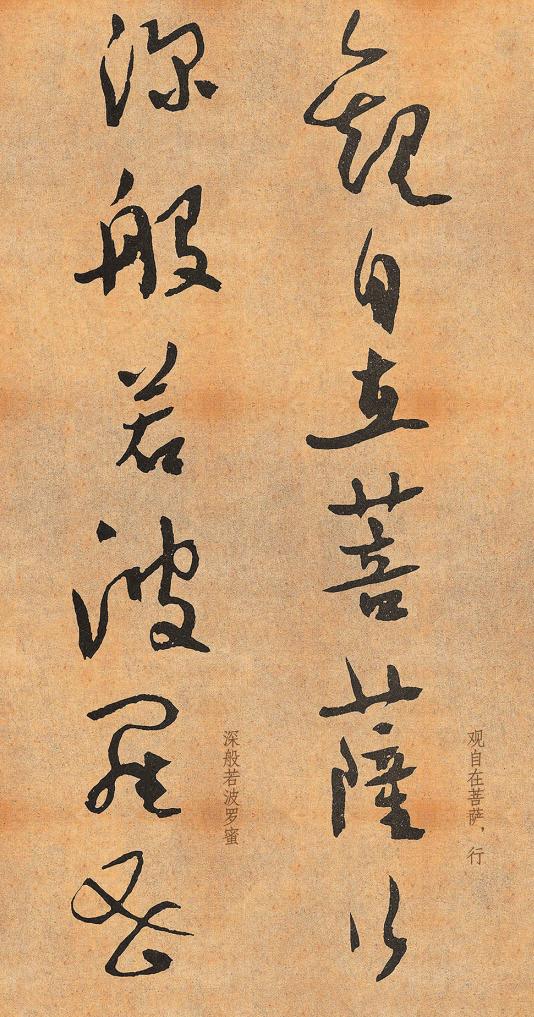 觀自在菩薩行
观自在菩萨，行
深般若波羅蜜
深般若波罗蜜